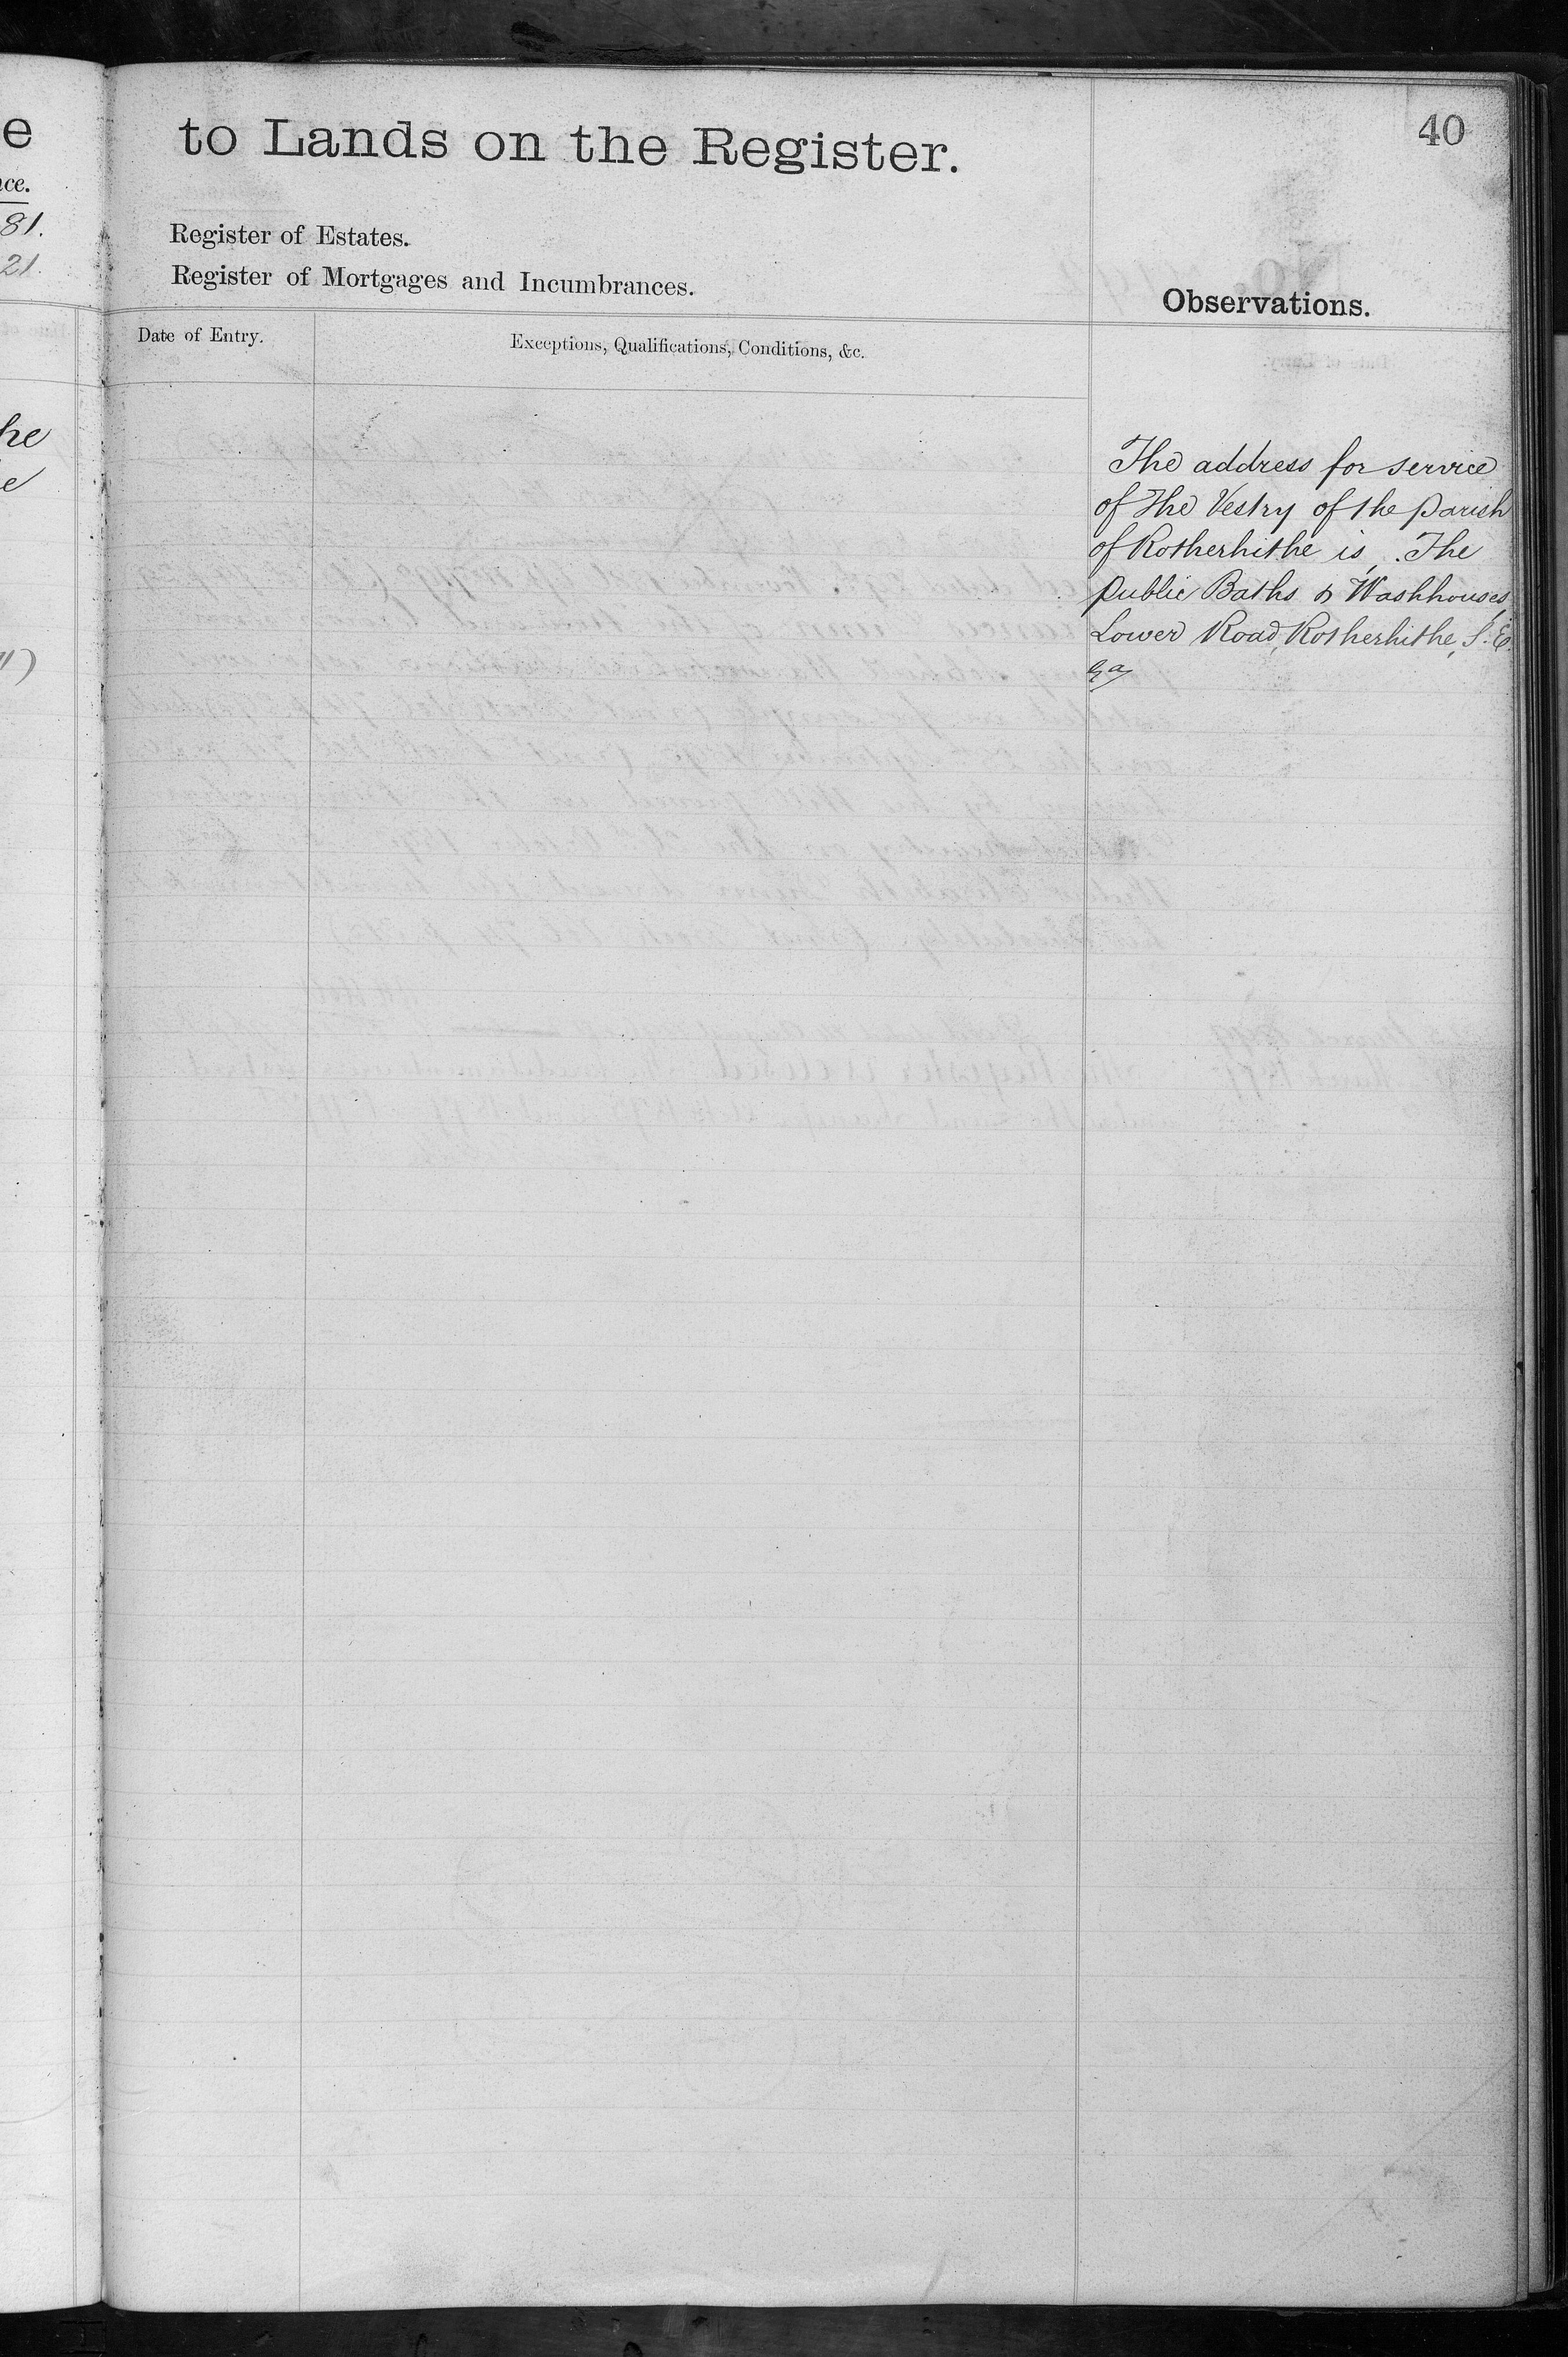 e
ce.
81.
21.
he
e
to Lands on the Register.
40
Register of Estates.
Register of Mortgages and Incumbrances.
Observations.
Date of Entry.
Exceptions, Qualifications, Conditions, &c.
The address for service
of The Vestry of the parish
of Rotherhithe is, The
Public Baths & Washhouses,
Lower Road, Rotherhithe, S.E.